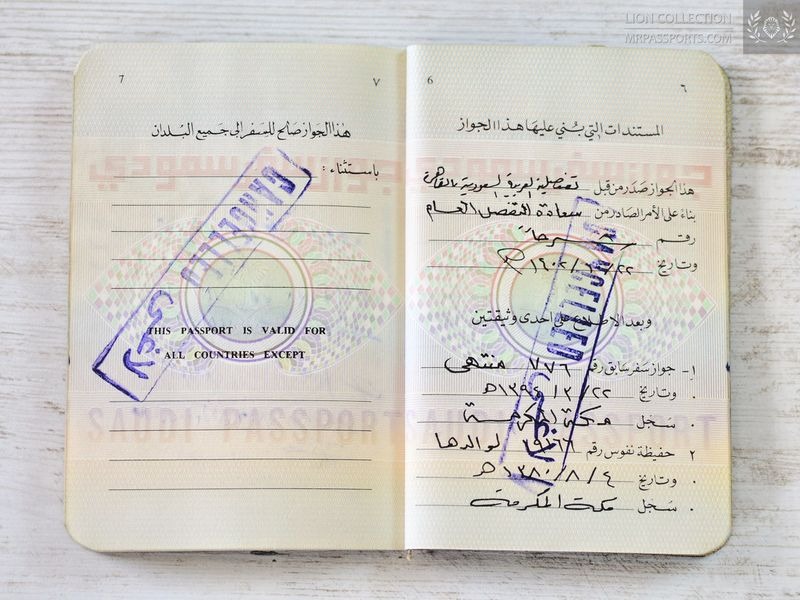 LION COLLECTION
MRPASSPORTS.COM
٦ 6
المستندات التي بُني عليها هذا الجواز
هذا الجواز صَدَر من قبل قنصلية العربية السعودية بالقاهرة
بناءً على الأمر الصادر من سعادة القنصل العام
رقم
وتاريخ
وبعد الاطلاع على احدى وثيقتين
١- جواز سفر سابق رقم ٧٧٦ منتهي
. وتاريخ ٢٢ / ٢ / ١٣٩٤ هـ
. سجل مكة المكرمة
٢ حفيظة نفوس رقم لوالدها
. وتاريخ ٤ / ٨ / ١٣٨٠ هـ
. سَجل مكة المكرمة
CANCELLED
لاغي
٧ 7
هذا الجواز صالح للسفر الى جميع البلدان
باستثناء :
THIS PASSPORT IS VALID FOR
ALL COUNTRIES EXCEPT
CANCELLED
لاغي
SAUDI PASSPORT SAUDI PASSPORT